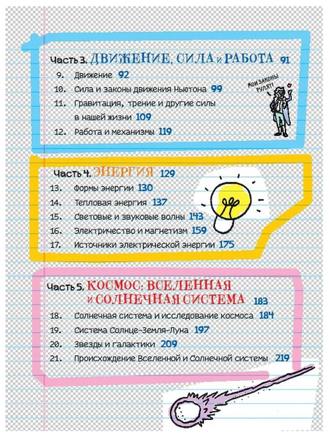 Часть 3. ДВИЖЕНИЕ, СИЛА и РАБОТА 91
9. Движение 92
10. Сила и законы движения Ньютона 99
11. Гравитация, трение и другие силы
в нашей жизни 109
12. Работа и механизмы 119
МОИ ЗАКОНЫ
РУЛЯТ!
Часть 4. ЭНЕРГИЯ 129
13. Формы энергии 130
14. Тепловая энергия 137
15. Световые и звуковые волны 143
16. Электричество и магнетизм 159
17. Источники электрической энергии 175
Часть 5. КОСМОС: ВСЕЛЕННАЯ
и СОЛНЕЧНАЯ СИСТЕМА 183
18. Солнечная система и исследование космоса 184
19. Система Солнце-Земля-Луна 197
20. Звезды и галактики 209
21. Происхождение Вселенной и Солнечной системы 219